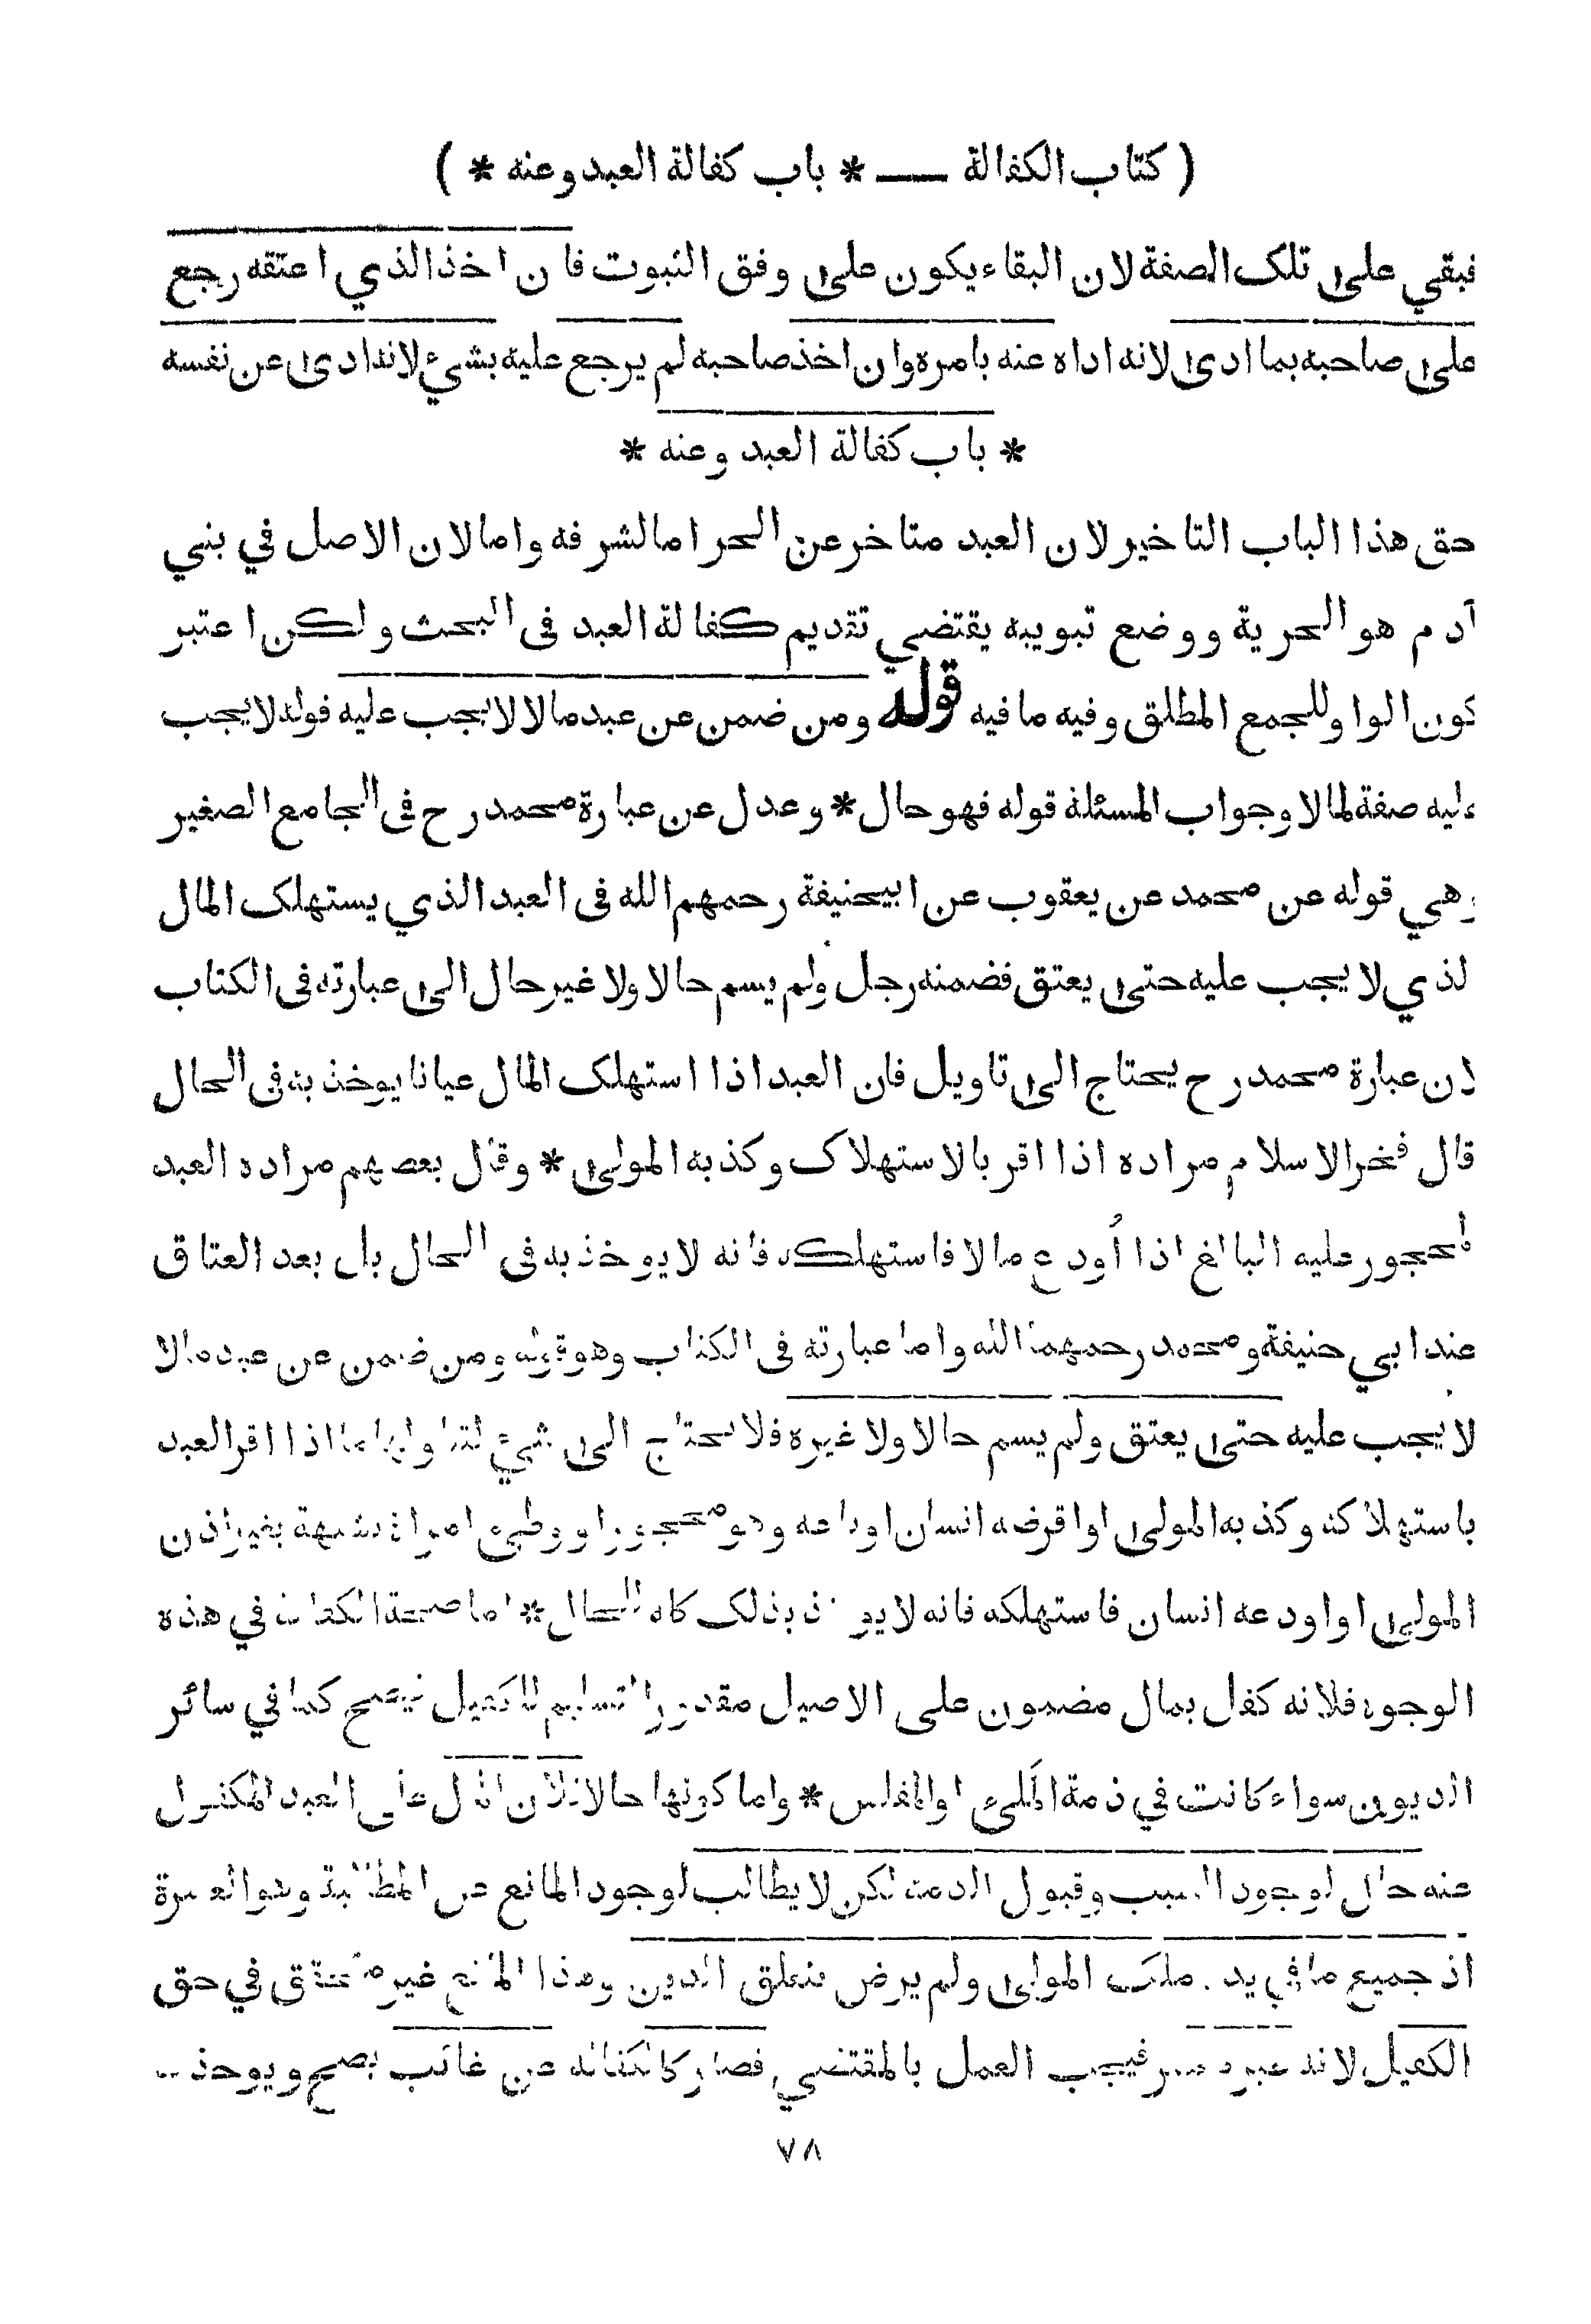 ( كتاب الكفالة — * باب كفالة العبد وعنه * )
فبقي على تلك الصفة لان البقاء يكون على وفق الثبوت فان اخذ الذي اعتقه رجع
على صاحبه بما ادى لانه اداه عنه بامره وان اخذ صاحبه لم يرجع عليه بشيء لانه ادى عن نفسه
* باب كفالة العبد وعنه *
حق هذا الباب التاخير لان العبد متاخر عن الحر اما لشرفه واما لان الاصل في بني
آدم هو الحرية ووضع تبويبه يقتضي تقديم كفالة العبد فى البحث ولكن اعتبر
كون الواو للجمع المطلق وفيه ما فيه قوله ومن ضمن عن عبد مالا لا يجب عليه قوله لا يجب
عليه صفة لمالا وجواب المسئلة قوله فهو حال * وعدل عن عبارة محمد رح فى الجامع الصغير
وهي قوله عن محمد عن يعقوب عن ابيحنيفة رحمهم الله فى العبد الذي يستهلك المال
لذي لا يجب عليه حتى يعتق فضمنه رجل ولم يسم حالا ولا غير حال الى عبارته فى الكتاب
لان عبارة محمد رح يحتاج الى تاويل فان العبد اذا استهلك المال عيانا يوخذ به فى الحال
قال فخر الاسلام مراده اذا اقر بالاستهلاك وكذبه المولى * وقال بعضهم مراده العبد
المحجور عليه البالغ اذا أودع مالا فاستهلكه فانه لا يوخذ به فى الحال بل بعد العتاق
عند ابي حنيفة ومحمد رحمهما الله واما عبارته فى الكتاب وهو قوله ومن ضمن عن عبد مالا
لا يجب عليه حتى يعتق ولم يسم حالا ولا غيره فلا يحتاج الى شيء اذا اقر العبد
باستهلاكه وكذبه المولى او اقرضه انسان او باعه وهو محجور او وطىء امراة بشبهة بغير اذن
المولى او اودعه انسان فاستهلكه فانه لا يو خذ بذلك الحال * اما صحة الكفالة في هذه
الوجوه فلانه كفل بمال مضمون على الاصيل مقدور التسليم للكفيل فيصح كما في سائر
الديون سواء كانت في ذمة الملىء او المفلس * واما كونها حالا فلان المال على العبد المكفول
عنه حال لوجود السبب وقبول الذمة لكن لا يطالب لوجود المانع عن المطالبة وهو العسرة
اذ جميع ما في يده ملك المولى ولم يرض بتعلق الدين وهذا المانع غير متحقق في حق
الكفيل لانه غير معسر فيجب العمل بالمقتضي فصار كالكفالة عن غائب يصح ويوخذ
٧٨